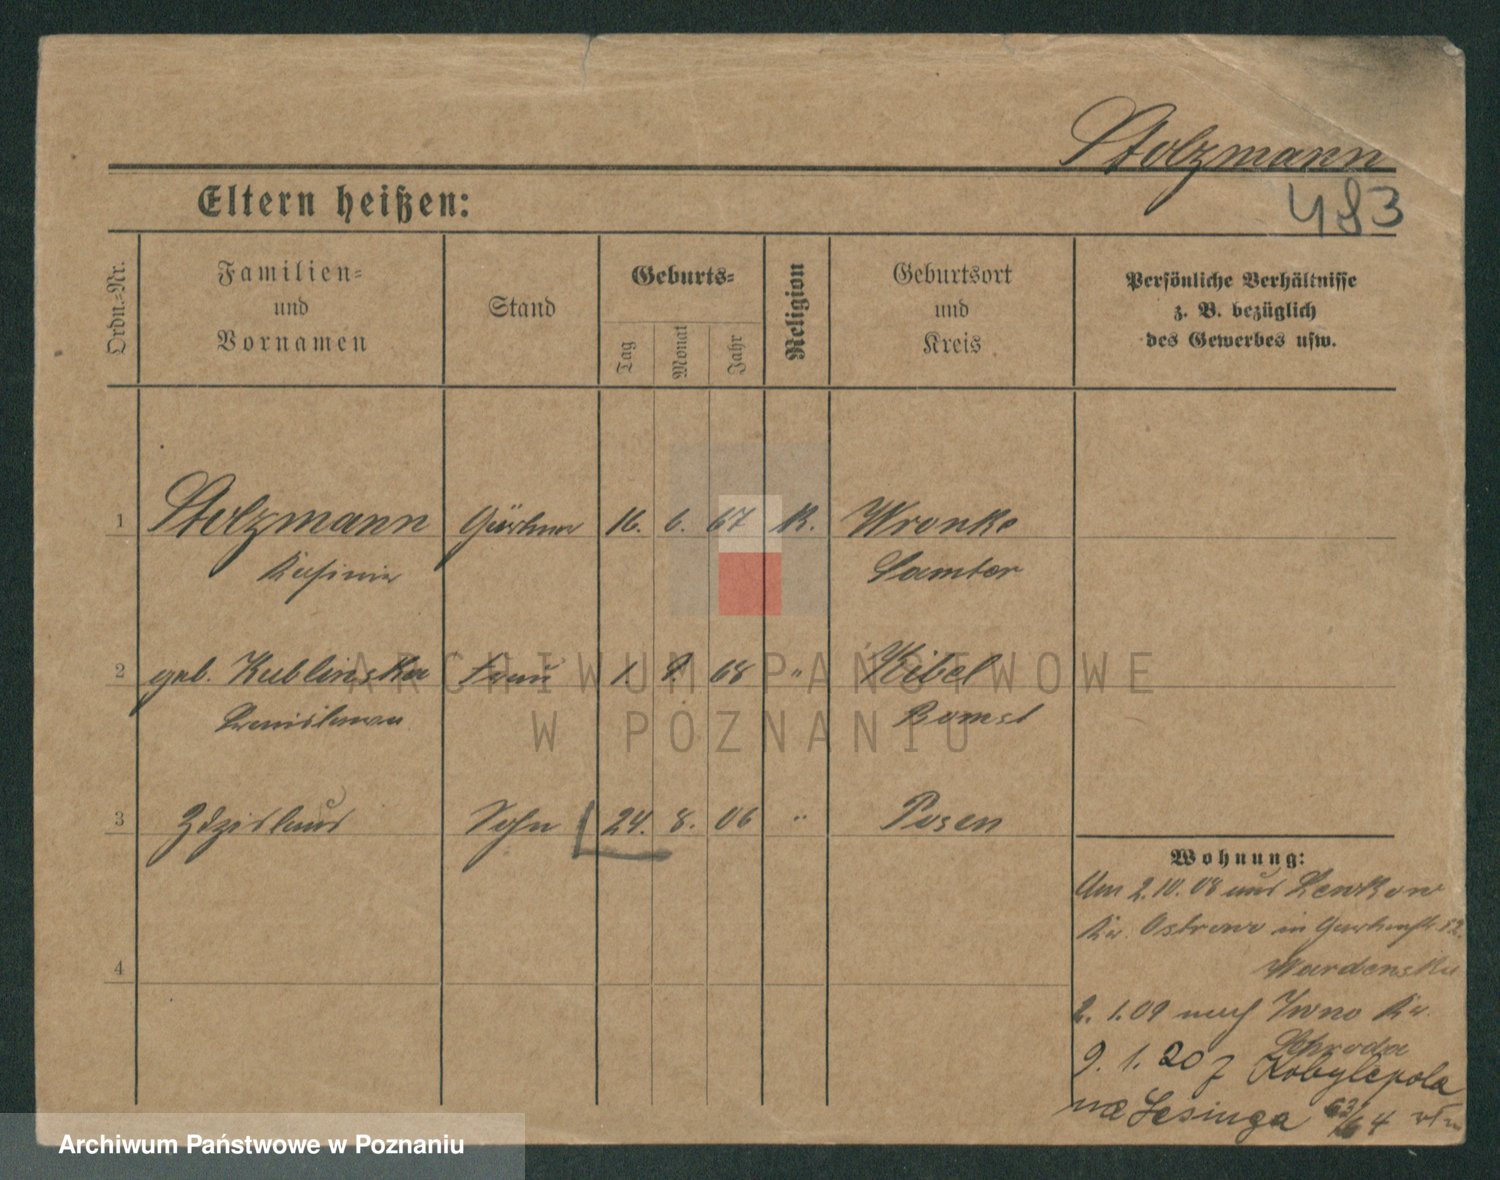 Stolzmann
483
Eltern heißen:
Ordn.-Nr.
Familien-
und
Vornamen
Stand
Geburts-
Tag
Monat
Jahr
Religion
Geburtsort
und
Kreis
Persönliche Verhältnisse
z. B. bezüglich
des Gewerbes usw.
1 Stolzmann Gärtner 16. 6. 67 K. Wronke
Kasimir Samter
2 geb. Kublinska Frau 1. 68 " Kibel
Stanislawa Bomst
3 Zdzislaus Sohn 24. 8. 06 " Posen
4
Wohnung:
Am 2.10.08 aus Lewkow
Kr. Ostrowo in
Wardenska
2. 1.09 nach Iwno Kr.
Schroda
9. 1. 20 z Kobylepola
na Lesinga
ARCHIWUM PAŃSTWOWE
W POZNANIU
Archiwum Państwowe w Poznaniu